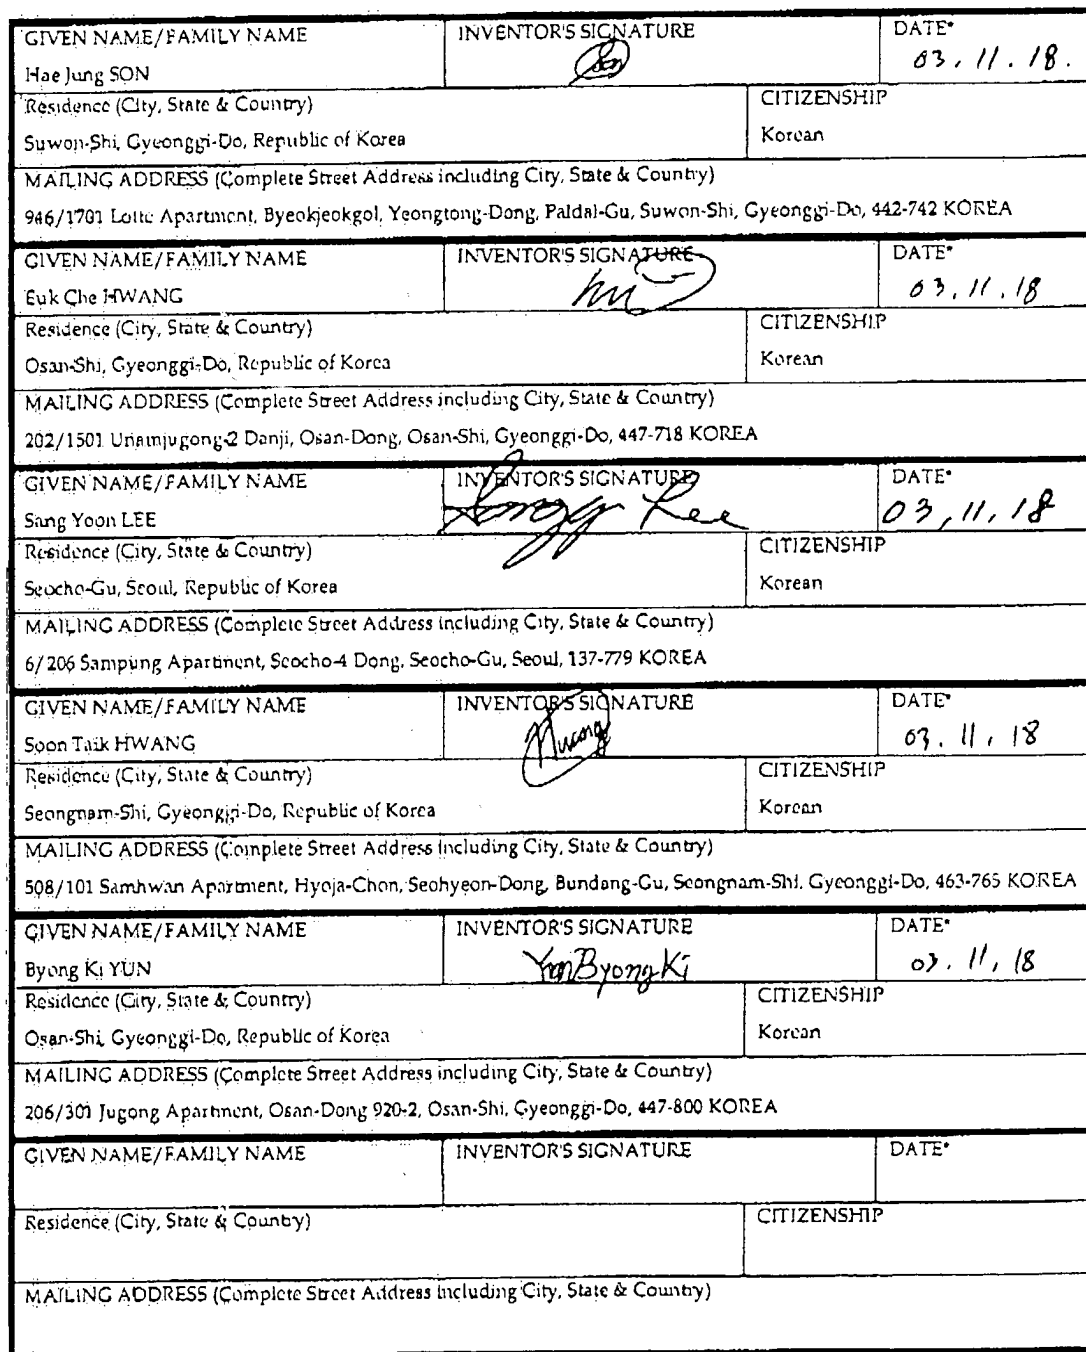 GIVEN NAME/FAMILY NAME INVENTOR'S SIGNATURE DATE*
Hae Jung SON Son 03.11.18.
Residence (City, State & Country) CITIZENSHIP
Suwon-Shi, Gyeonggi-Do, Republic of Korea Korean
MAILING ADDRESS (Complete Street Address including City, State & Country)
946/1701 Lotte Apartment, Byeokjeokgol, Yeongtong-Dong, Paldal-Gu, Suwon-Shi, Gyeonggi-Do, 442-742 KOREA
GIVEN NAME/FAMILY NAME INVENTOR'S SIGNATURE DATE*
Euk Che HWANG 03.11.18
Residence (City, State & Country) CITIZENSHIP
Osan-Shi, Gyeonggi-Do, Republic of Korea Korean
MAILING ADDRESS (Complete Street Address including City, State & Country)
202/1501 Unamjugong-2 Danji, Osan-Dong, Osan-Shi, Gyeonggi-Do, 447-718 KOREA
GIVEN NAME/FAMILY NAME INVENTOR'S SIGNATURE DATE*
Sang Yoon LEE Lee 03,11,18
Residence (City, State & Country) CITIZENSHIP
Seocho-Gu, Seoul, Republic of Korea Korean
MAILING ADDRESS (Complete Street Address including City, State & Country)
6/206 Sampung Apartment, Seocho-4 Dong, Seocho-Gu, Seoul, 137-779 KOREA
GIVEN NAME/FAMILY NAME INVENTOR'S SIGNATURE DATE*
Soon Taik HWANG Hwang 03.11,18
Residence (City, State & Country) CITIZENSHIP
Seongnam-Shi, Gyeonggi-Do, Republic of Korea Korean
MAILING ADDRESS (Complete Street Address including City, State & Country)
508/101 Samhwan Apartment, Hyoja-Chon, Seohyeon-Dong, Bundang-Gu, Seongnam-Shi, Gyeonggi-Do, 463-765 KOREA
GIVEN NAME/FAMILY NAME INVENTOR'S SIGNATURE DATE*
Byong Ki YUN Yun Byong Ki 03.11,18
Residence (City, State & Country) CITIZENSHIP
Osan-Shi, Gyeonggi-Do, Republic of Korea Korean
MAILING ADDRESS (Complete Street Address including City, State & Country)
206/301 Jugong Apartment, Osan-Dong 920-2, Osan-Shi, Gyeonggi-Do, 447-800 KOREA
GIVEN NAME/FAMILY NAME INVENTOR'S SIGNATURE DATE*
Residence (City, State & Country) CITIZENSHIP
MAILING ADDRESS (Complete Street Address including City, State & Country)